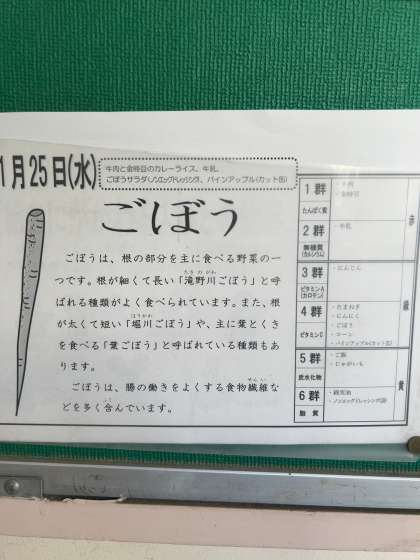 1月25日(水)
牛肉と金時豆のカレーライス、牛乳、
ごぼうサラダ(ノンエッグドレッシング)、パインアップル(カット缶)
ごぼう
ごぼうは、根の部分を主に食べる野菜の一
つです。根が細くて長い「滝野川ごぼう」と呼
ばれる種類がよく食べられています。また、根
が太くて短い「堀川ごぼう」や、主に葉とくき
を食べる「葉ごぼう」と呼ばれている種類もあ
ります。
ごぼうは、腸の働きをよくする食物繊維な
どを多く含んでいます。
1群
たんぱく質
・牛肉
・金時豆
2群
無機質
(カルシウム)
・牛乳
赤
3群
ビタミンA
(カロテン)
・にんじん
4群
ビタミンC
・たまねぎ
・にんにく
・ごぼう
・コーン
・パインアップル(カット缶)
緑
5群
炭水化物
・ご飯
・じゃがいも
6群
脂質
・綿実油
・ノンエッグドレッシング
黄